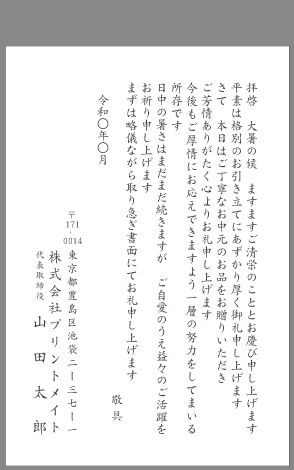 拝啓　大暑の候　ますますご清栄のこととお慶び申し上げます
平素は格別のお引き立てにあずかり厚く御礼申し上げます
さて　本日はご丁寧なお中元のお品をお贈りいただき
ご芳情ありがたく心よりお礼申し上げます
今後もご厚情にお応えできますよう一層の努力をしてまいる
所存です
日中の暑さはまだまだ続きますが　ご自愛のうえ益々のご活躍を
お祈り申し上げます
まずは略儀ながら取り急ぎ書面にてお礼申し上げます
敬具
令和〇年〇月
〒171-0014
東京都豊島区池袋二ー三七ー一
株式会社プリントメイト
代表取締役　山田太郎